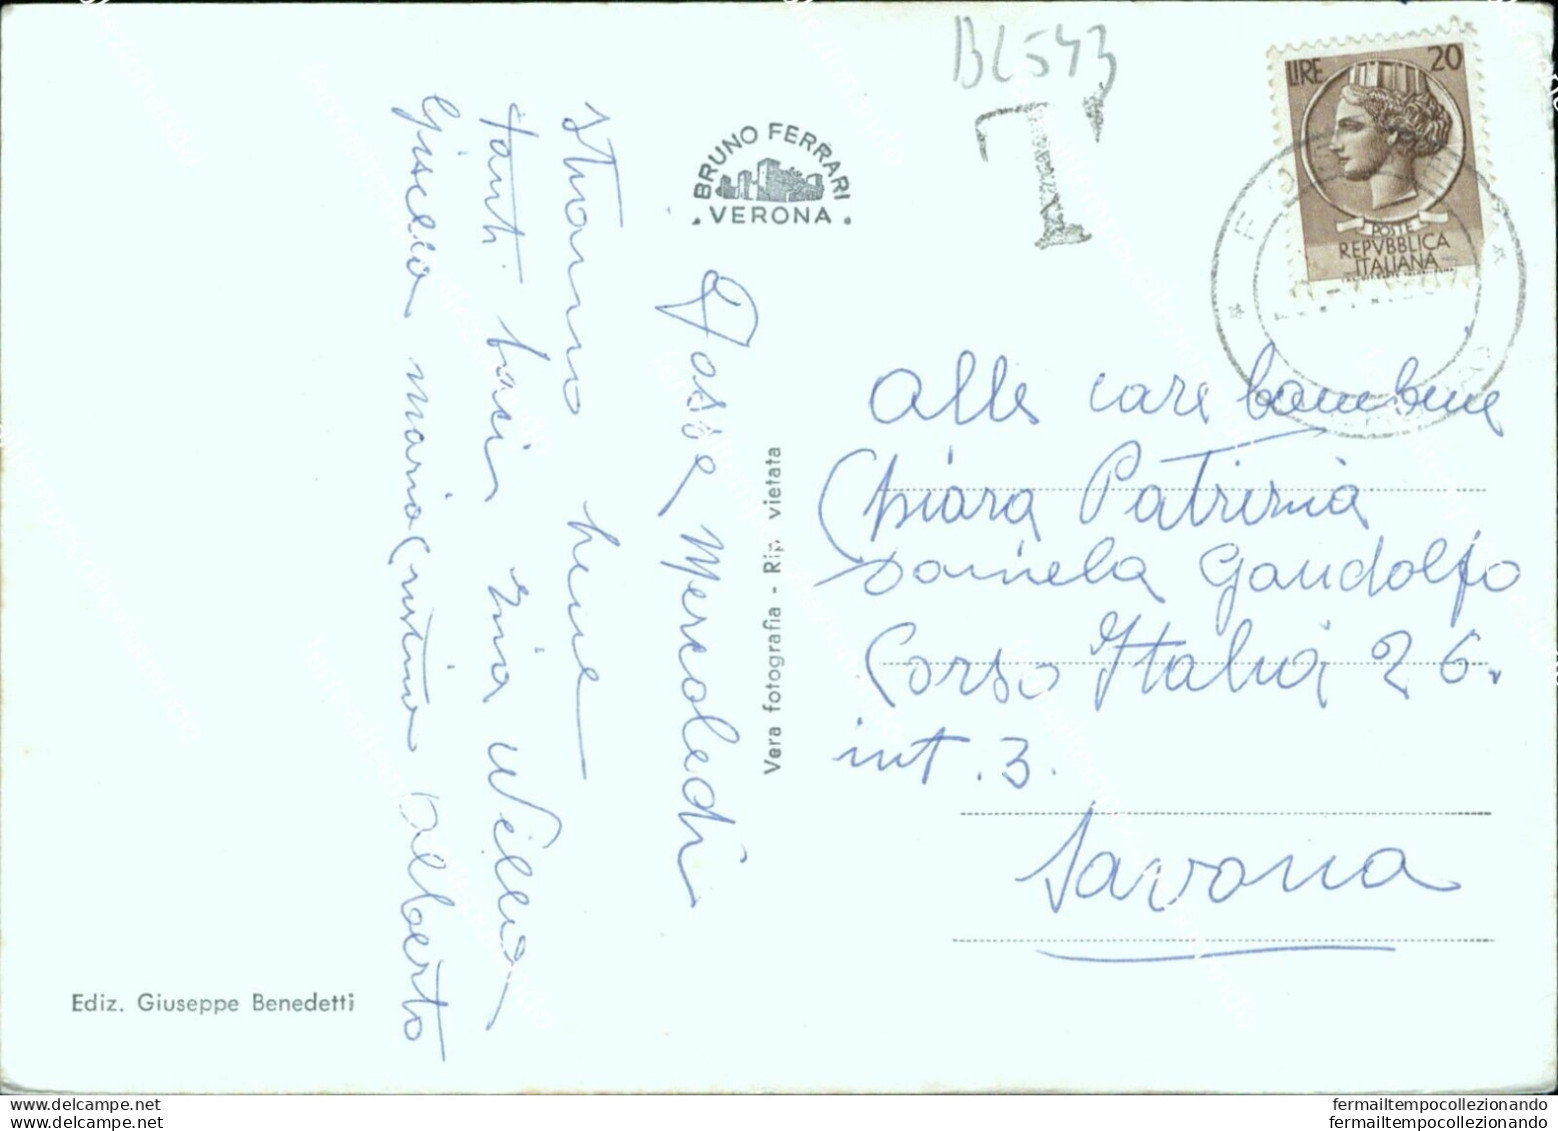 BC543
T
LIRE 20
POSTE
REPVBBLICA
ITALIANA
BRUNO FERRARI
. VERONA .
Fosse, Mercoledì
stanno bene
tanti baci zia Nilla
Alberto
Vera fotografia - Rip. vietata
Alle care bambine
Chiara Patrizia
Daniela Gandolfo
Corso Italia 26.
int. 3.
Savona
Ediz. Giuseppe Benedetti
www.delcampe.net
www.delcampe.net
fermailtempocollezionando
fermailtempocollezionando